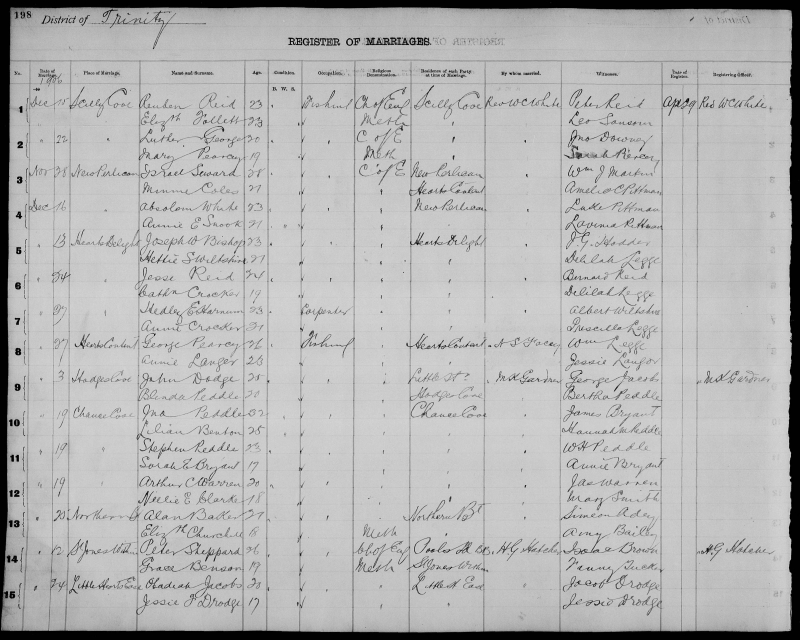 198
District of Trinity
REGISTER OF MARRIAGES.
No. Date of Marriage. Place of Marriage. Name and Surname. Age. Condition. Occupation. Religious Denomination. Residence of each Party at time of Marriage. By whom married. Witnesses. Date of Register. Registering Officer.
1906 B. W. S.
1 Dec 15 Scilly Cove Reuben Reid 23 Ch of Eng Scilly Cove Rev W C White Peter Reid Apl 29 Rev W C White
Elizth Follett 23 Meth " Leo Sansom
2 " 22 " Luther George 20 C of E " " Jno Downey
Mary Pearcey 19 Meth " Sarah Piercey
3 Nov 28 New Perlican Israel Seward 28 C of E New Perlican " Wm J Martin
Minnie Coles 21 " Hearts Content Amelia C Pittman
4 Dec 16 " Absalom White 23 " New Perlican " Luke Pittman
Annie E Snook 21 " " Lavinia Pittman
5 " 13 Hearts Delight Joseph W Bishop 23 " Hearts Delight " J G Hodder
Hettie S Wiltshire 21 " " Delilah Legge
6 " 24 " Jesse Reid 24 " " " Bernard Reid
Cathn Crocker 19 " " Delilah Legge
7 " 27 " Hedley E Harnum 23 Carpenter " " " Albert Wiltshire
Annie Crocker 21 " " Priscilla Legge
8 " 27 Hearts Content George Pearcy 26 " Hearts Content " A S Facey Wm Legge
Annie Langer 23 " " Jessie Langor
9 " 3 Hodges Cove John Dodge 25 " Little Ht " M K Gardner George Jacobs " M K Gardner
Blenda Peddle 20 " Hodges Cove Bertha Peddle
10 " 19 Chance Cove Ina Peddle 32 " Chance Cove " James Bryant
Lilian Benton 25 " " Hannah M Peddle
11 " 19 " Stephen Peddle 23 " " " W H Peddle
Sarah E Bryant 17 " " Annie Bryant
12 " 19 " Arthur C Warren 20 " " " Jas Warren
Nellie E Clarke 18 " " Mary Smith
13 " 25 Northern Bt Alan Baker 21 " Northern Bt " Simeon Adey
Elizth Churchill 18 Meth " Amy Bailey
14 " 12 St Jones Within Peter Sheppard 26 Ch of Eng " H G Hatcher Isaac Brown " H G Hatcher
Grace Benson 19 Meth St Jones Within Fanny Tucker
15 " 24 Little Hearts Ease Obadiah Jacobs 20 " Little Ht Ease " Jacob Drodge
Jessie F Drodge 17 " " Jessie Drodge